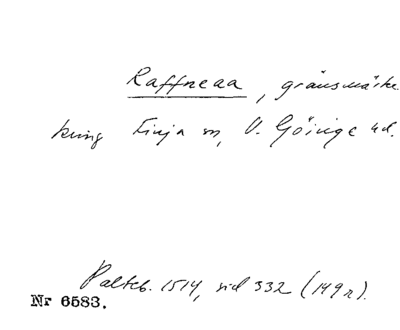 Raffneaa, gränsmärke
kring Finja sn, V. Göinge hd.
Palteb. 1514, sid 332 (149 r).
Nr 6583.